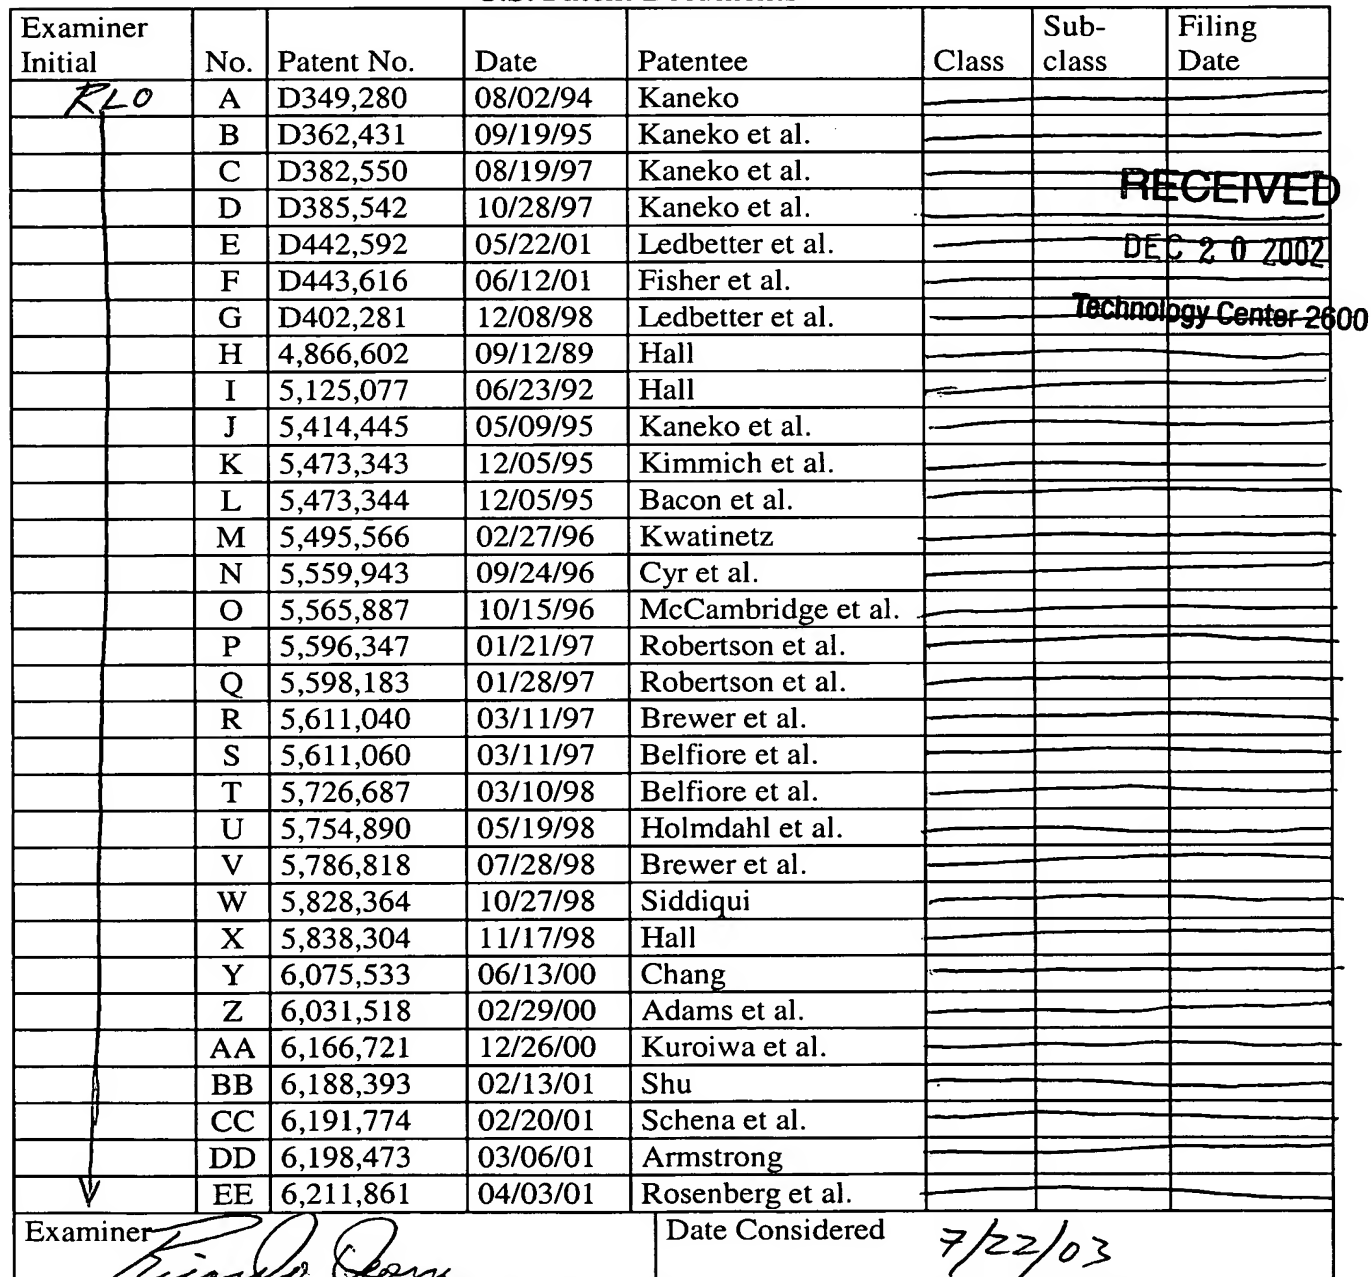 Examiner Initial No. Patent No. Date Patentee Class Sub-class Filing Date
RLO A D349,280 08/02/94 Kaneko
B D362,431 09/19/95 Kaneko et al.
C D382,550 08/19/97 Kaneko et al.
RECEIVED
D D385,542 10/28/97 Kaneko et al.
E D442,592 05/22/01 Ledbetter et al.
DEC 20 2002
F D443,616 06/12/01 Fisher et al.
G D402,281 12/08/98 Ledbetter et al.
Technology Center 2600
H 4,866,602 09/12/89 Hall
I 5,125,077 06/23/92 Hall
J 5,414,445 05/09/95 Kaneko et al.
K 5,473,343 12/05/95 Kimmich et al.
L 5,473,344 12/05/95 Bacon et al.
M 5,495,566 02/27/96 Kwatinetz
N 5,559,943 09/24/96 Cyr et al.
O 5,565,887 10/15/96 McCambridge et al.
P 5,596,347 01/21/97 Robertson et al.
Q 5,598,183 01/28/97 Robertson et al.
R 5,611,040 03/11/97 Brewer et al.
S 5,611,060 03/11/97 Belfiore et al.
T 5,726,687 03/10/98 Belfiore et al.
U 5,754,890 05/19/98 Holmdahl et al.
V 5,786,818 07/28/98 Brewer et al.
W 5,828,364 10/27/98 Siddiqui
X 5,838,304 11/17/98 Hall
Y 6,075,533 06/13/00 Chang
Z 6,031,518 02/29/00 Adams et al.
AA 6,166,721 12/26/00 Kuroiwa et al.
BB 6,188,393 02/13/01 Shu
CC 6,191,774 02/20/01 Schena et al.
DD 6,198,473 03/06/01 Armstrong
EE 6,211,861 04/03/01 Rosenberg et al.
Examiner Date Considered 7/22/03